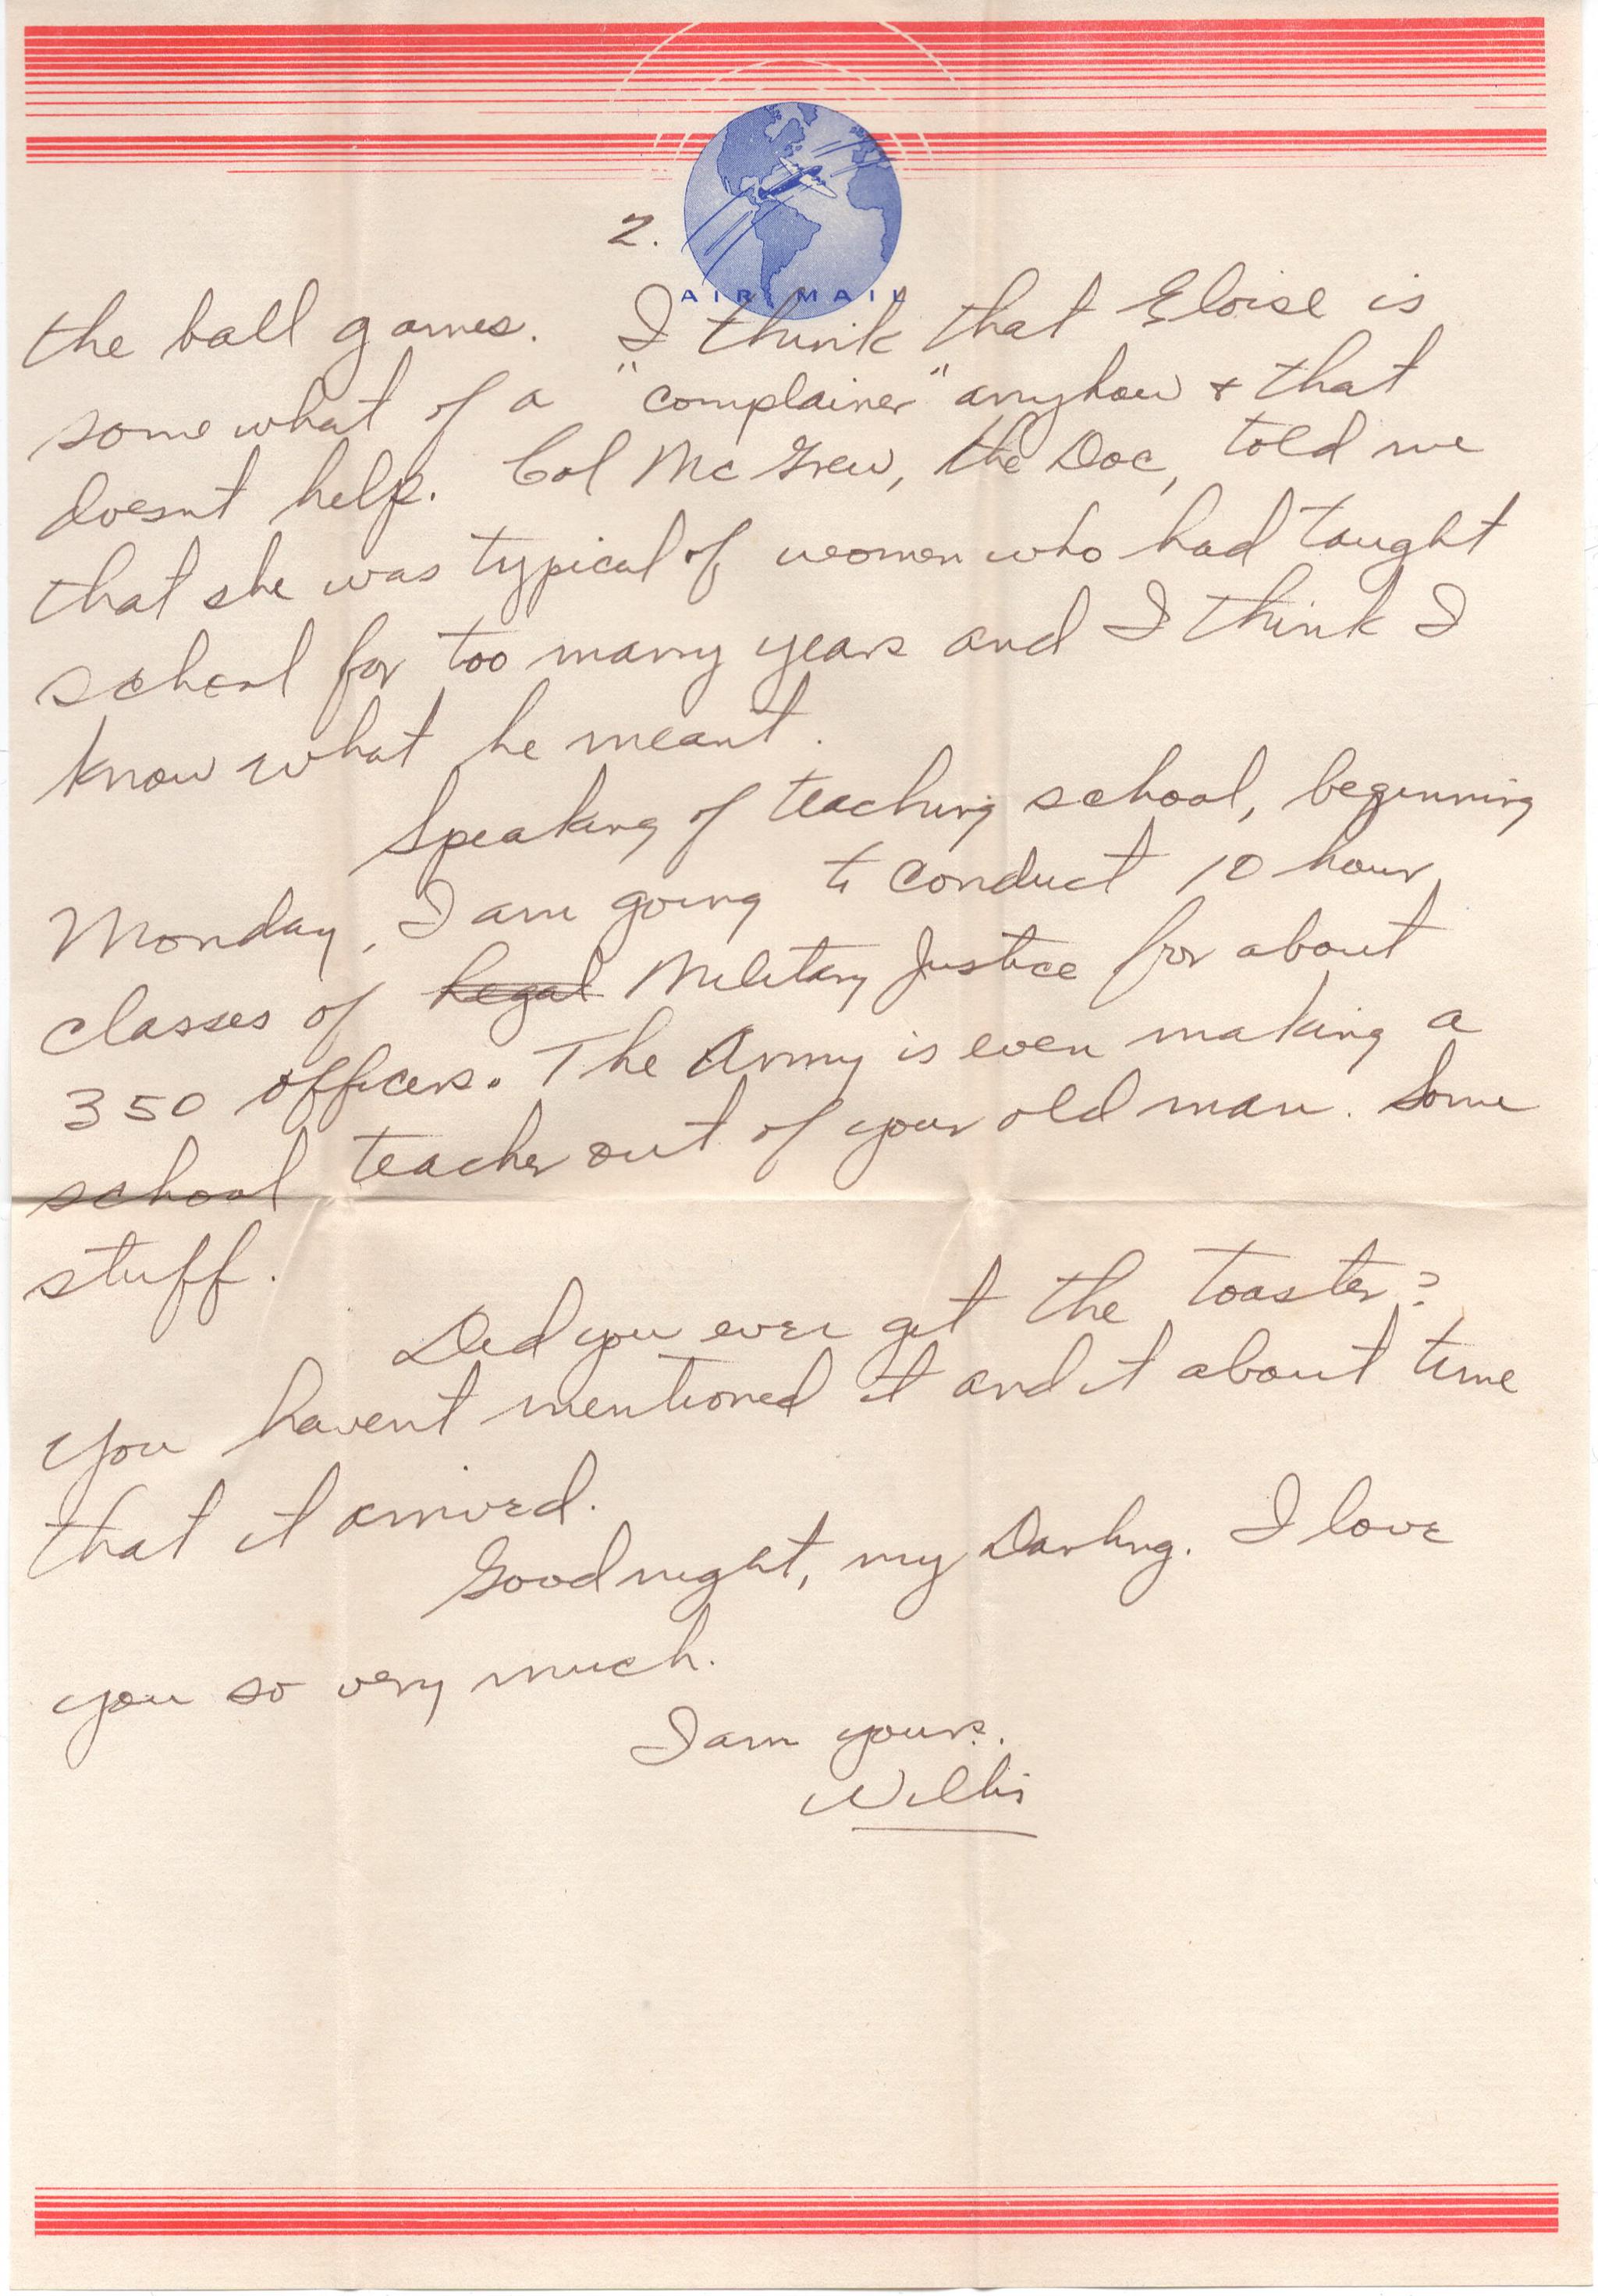 2.
AIR MAIL
the ball games. I think that Eloise is
somewhat of a "complainer" anyhow & that
doesnt help. Col McGrew, the Doc, told me
that she was typical of women who had taught
school for too many years and I think I
know what he meant.
Speaking of teaching school, beginning
Monday, I am going to conduct 10 hour
classes of legal Military Justice for about
350 officers. The Army is even making a
school teacher out of your old man. Some
stuff.
Did you ever get the toaster?
You havent mentioned it and it about time
that it arrived.
Good night, my Darling. I love
you so very much.
I am yours.
Willis